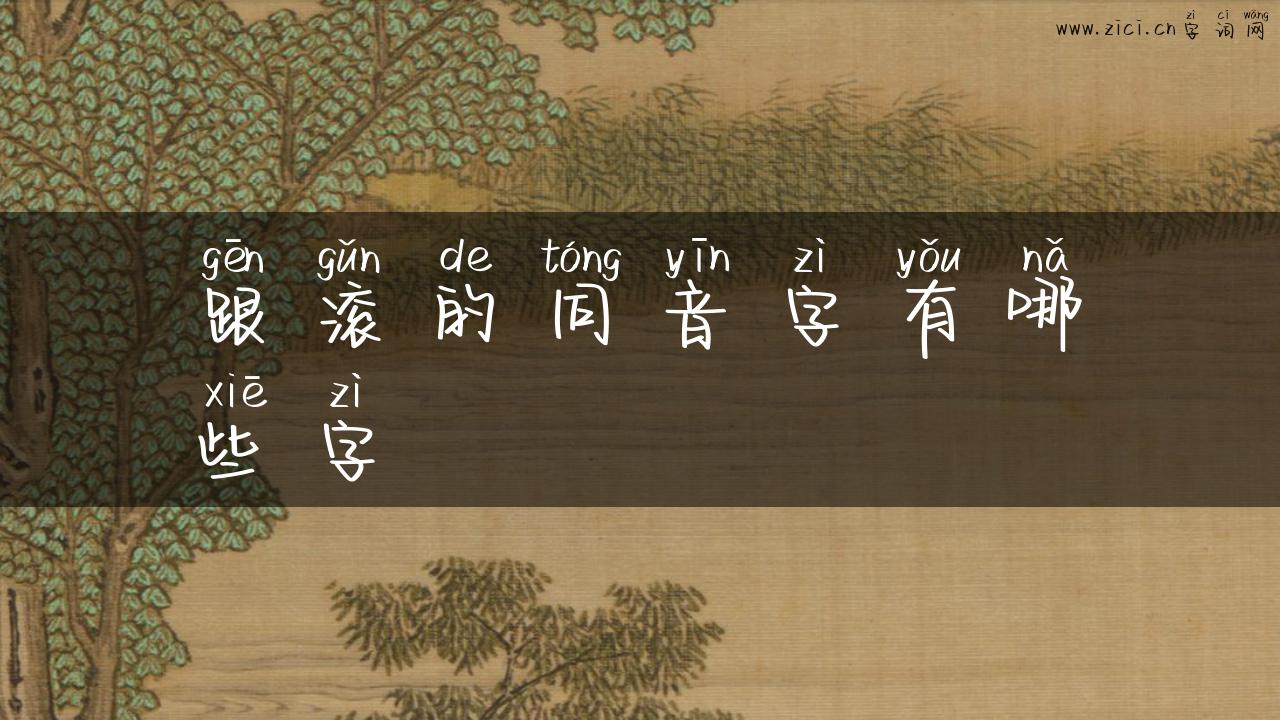 zì cí wǎng
www.zici.cn字词网
gēn gǔn de tóng yīn zì yǒu nǎ
跟滚的同音字有哪
xiē zì
些字